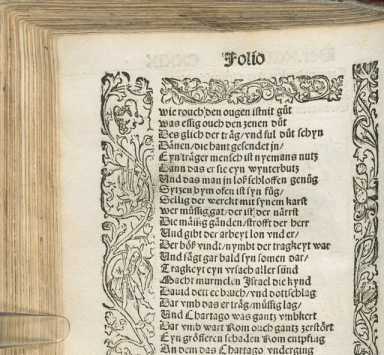 Folio
wie rouch den ougen ist nit gůt
was essig ouch den zenen důt
Des glich der träg / vnd ful důt schyn
Dänen / die hant gesendet jn /
Eyn träger mensch ist nyemans nutz
Dann das er sie eyn wynterbutz
Und das man in loß schloffen genůg
Sytzen bym ofen ist syn fůg /
Sellig der werckt mit synem karst
wer müssig gat / der ist der närrst
Die müssig gänden / strofft der herr
Und gibt der arbeyt lon vnd er /
Der böß vindt / nymbt der tragkeyt war
Und sägt gar bald syn somen dar /
Tragkeyt eyn vrsach aller sünd
Macht murmelen Israel die kynd
Dauid dett eebruch / vnd dottschlag
Dar vmb das er träg / müssig lag /
Und Chartago was gantz vmbkert
Dar vmb wart Rom ouch gantz zerstört
Eyn grösseren schaden Rom entpfing
An dem das Chartago vnderging